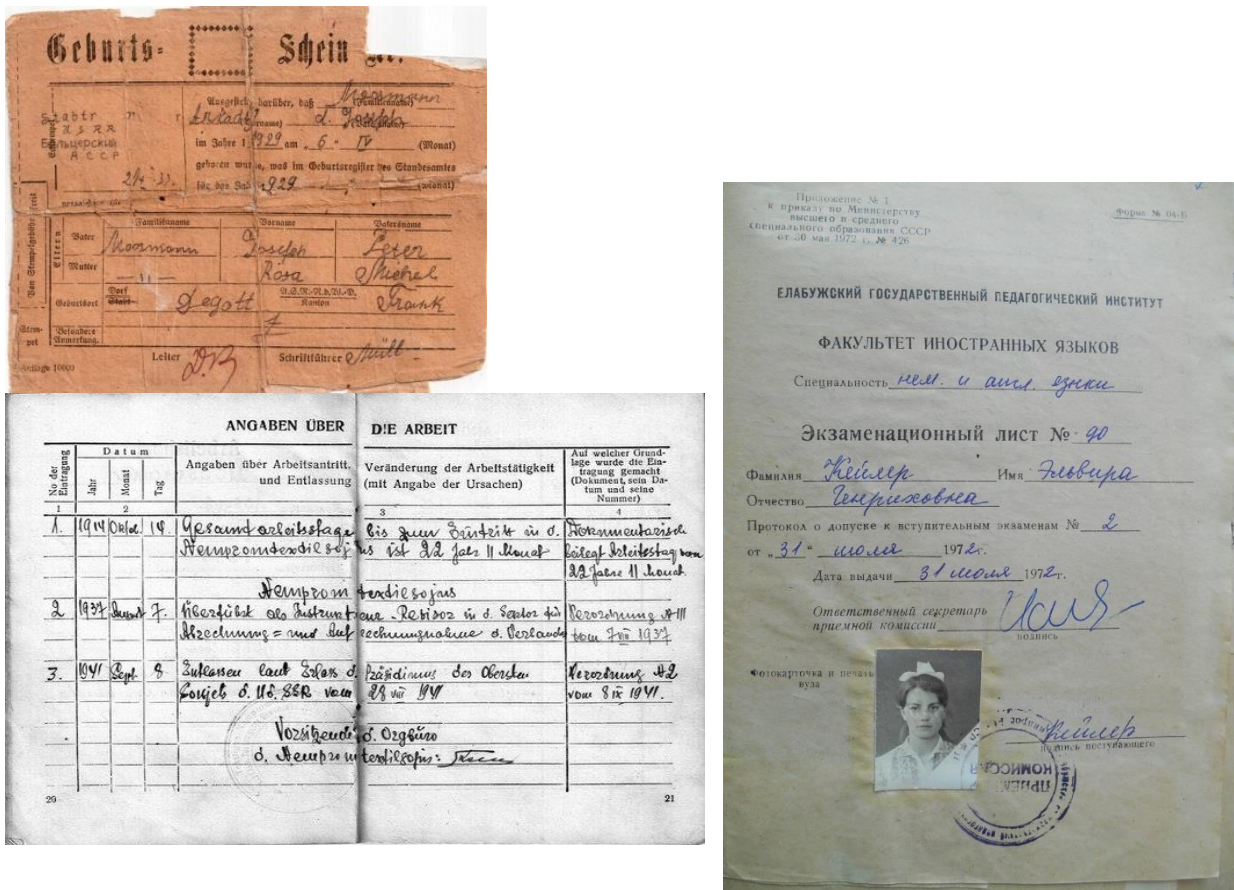 Geburts- Schein
Ausgestellt darüber, daß Moormann
(Familienname)
Arkadij d. Joseph
im Jahre 1929 am 6. IV (Monat)
geboren wurde, was im Geburtsregister des Standesamtes
für das Jahr 1929 (Monat)
Бельцерский
АССР
Von Stempelgebühr befreit
Eltern
Familienname Vorname Vatersname
Vater Moormann Joseph Peter
Mutter —"— Rosa Michel
Geburtsort Dorf Degott Kanton Frank
Stadt
A.S.R.R.d.W.D.
Besondere
Anmerkung.
Stempel
Leiter Schriftführer Müll
Auflage 10000
ANGABEN ÜBER DIE ARBEIT
No der Eintragung
Datum
Jahr Monat Tag
Angaben über Arbeitsantritt, Veränderung der Arbeitstätigkeit
und Entlassung (mit Angabe der Ursachen)
Auf welcher Grund-
lage wurde die Ein-
tragung gemacht
(Dokument, sein Da-
tum und seine
Nummer)
1 2 3 4
1. Oktob. 14. Gesamtarbeitsstage bis zum Eintritt in d. Dokumentarisch
Nempromtextilsojus ist 22 Jahr 11 Monat belegt Arbeitsstag von
22 Jahre 11 Monat.
Nempromtextilsojus
2 1937 August 7. Überführt als Instrukteur-Revisor in d. Sektor für Verordnung
Abrechnung= und Aufrechnungnahme d. Verlander vom 7 VIII 1937
3. 1941 Sept. 8 Entlassen laut Erlass d. Präsidiums des Obersten Verordnung №2
Sowjets d. Ud.SSR vom 28 VIII 1941 vom 8 IX 1941.
Vorsitzender d. Orgbüro
d. Nempromtextilsojus:
20 21
Приложение № 1
к приказу по Министерству
высшего и среднего
специального образования СССР
от 30 мая 1972 г. № 426
Форма № 04-Б
ЕЛАБУЖСКИЙ ГОСУДАРСТВЕННЫЙ ПЕДАГОГИЧЕСКИЙ ИНСТИТУТ
ФАКУЛЬТЕТ ИНОСТРАННЫХ ЯЗЫКОВ
Специальность нем. и англ. языки
Экзаменационный лист № 90
Фамилия Кейлер Имя Эльвира
Отчество Генриховна
Протокол о допуске к вступительным экзаменам № 2
от „31" июля 1972г.
Дата выдачи 31 июля 1972г.
Ответственный секретарь
приемной комиссии
подпись
Фотокарточка и печать
вуза
Кейлер
подпись поступающего
ПРИЕМ
КОМИССИЯ